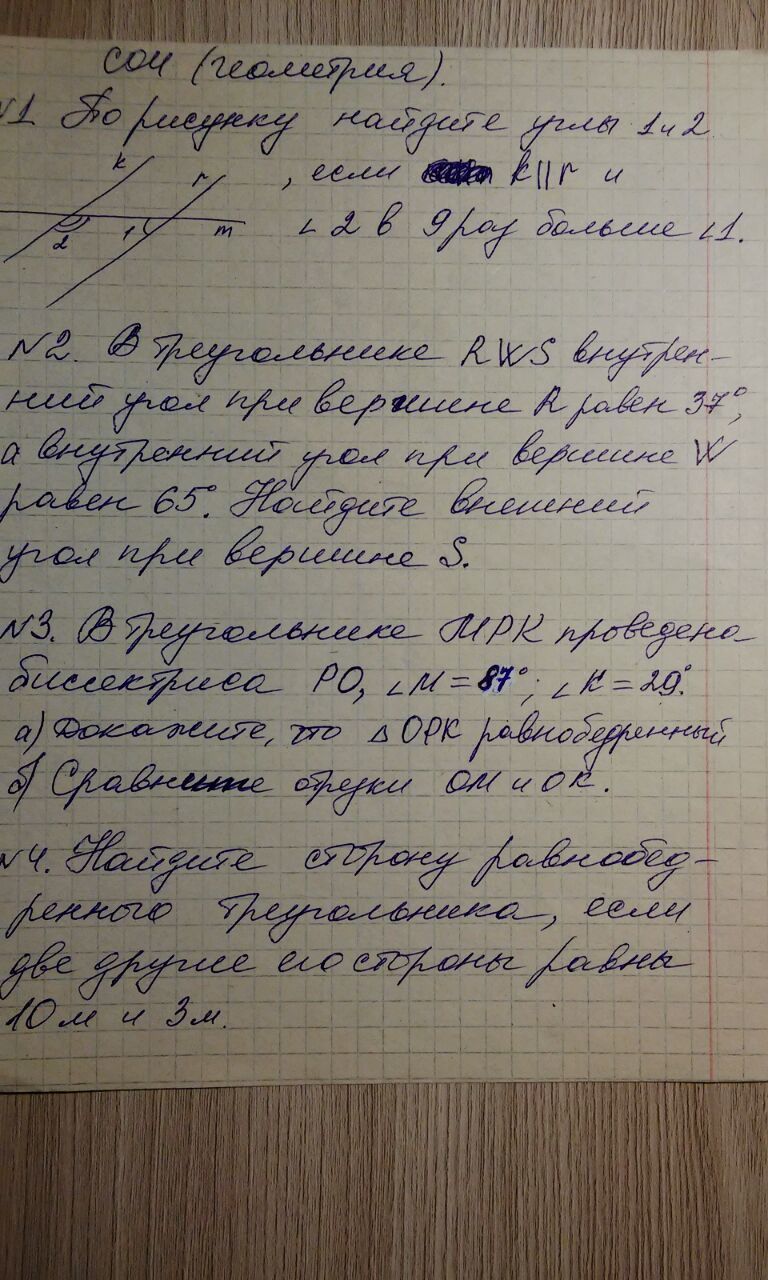 СОЧ (геометрия).
№1 По рисунку найдите углы 1 и 2
k r , если k||r и
2 1 m ∟2 в 9 раз больше ∟1.
№2. В треугольнике RWS внутрен-
ний угол при вершине R равен 37°,
а внутренний угол при вершине W
равен 65°. Найдите внешний
угол при вершине S.
№3. В треугольнике МРК проведена
биссектриса РО, ∟М = 87°; ∟К = 29°.
а) Докажите, что △ОРК равнобедренный
б) Сравните отрезки ОМ и ОК.
№4. Найдите сторону равнобед-
ренного треугольника, если
две другие его стороны равны
10 м и 3 м.